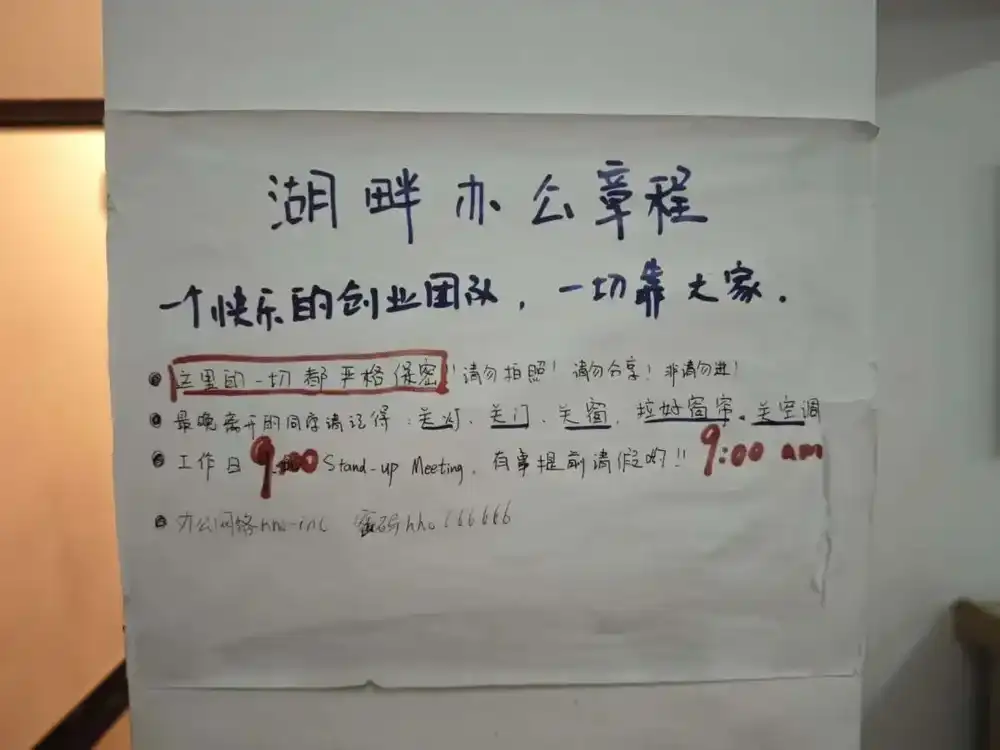 湖畔办公章程
一个快乐的创业团队，一切靠大家.
这里的一切都严格保密！请勿拍照！请勿分享！非请勿进！
最晚离开的同学请记得：关灯、关门、关窗、拉好窗帘、关空调
工作日 9:00 Stand-up Meeting，有事提前请假哟!! 9:00 am
办公网络 hho-inc 密码 hho666666